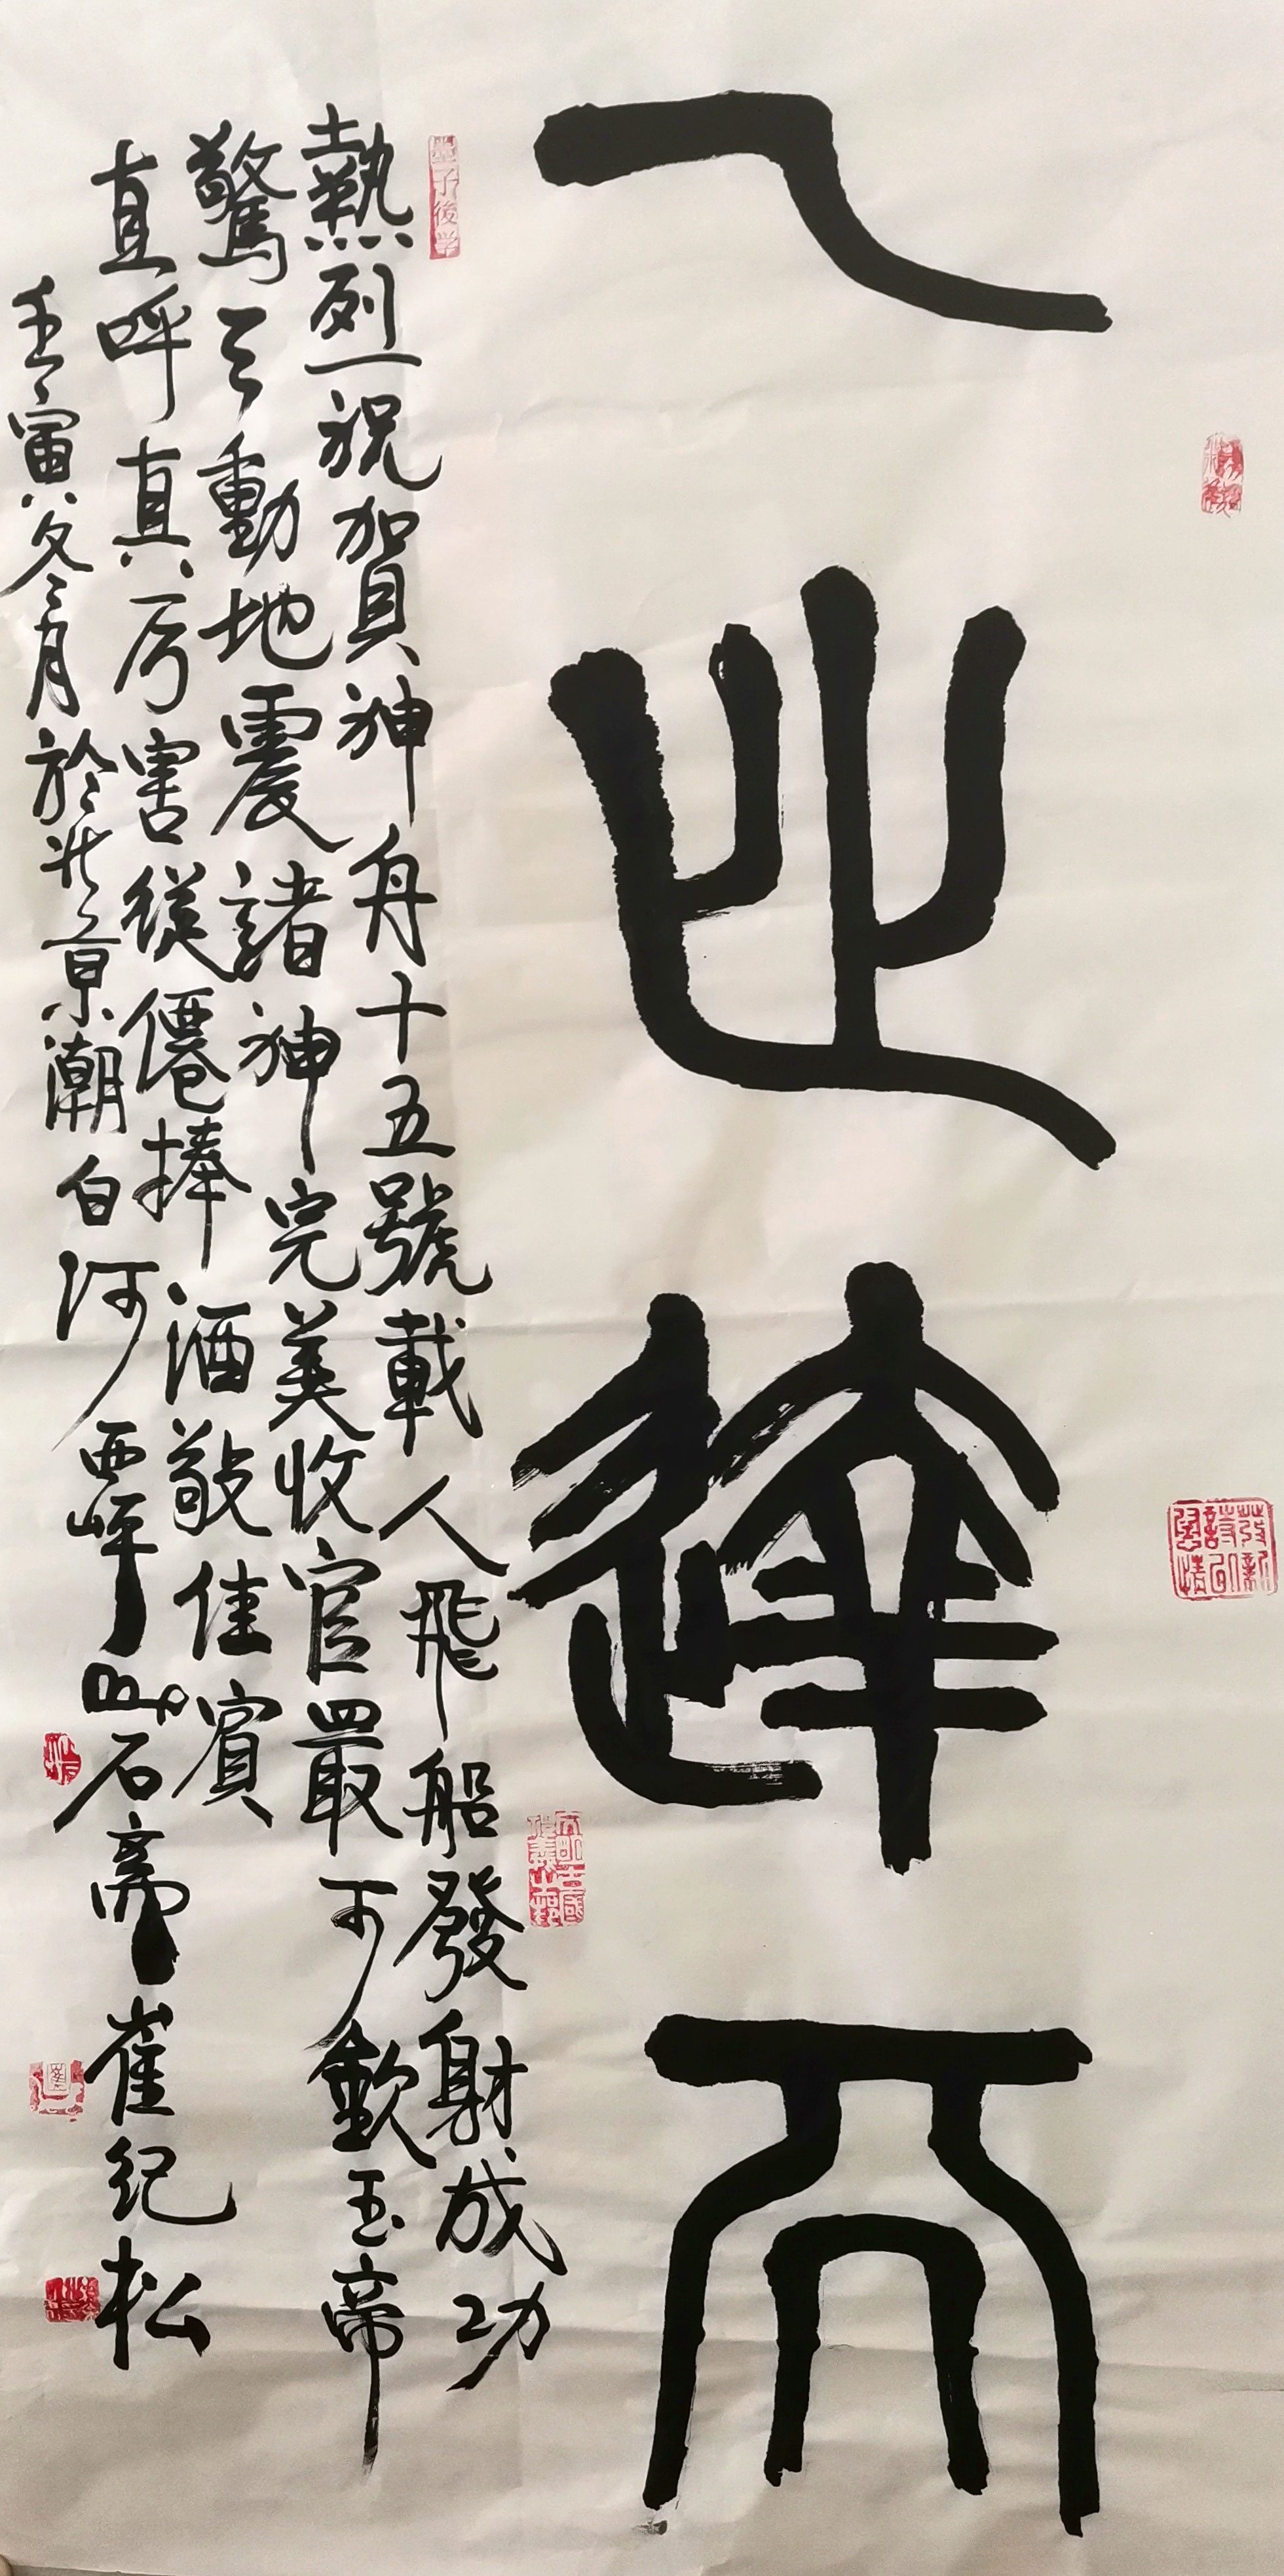 之達而
墨子後学
熱烈祝賀神舟十五號載人飛船發射成功
驚天動地震諸神完美收官最可欽玉帝
直呼真厉害從僊捧酒敬佳賓
壬寅冬月於北京潮白河西岸石斋崔纪松